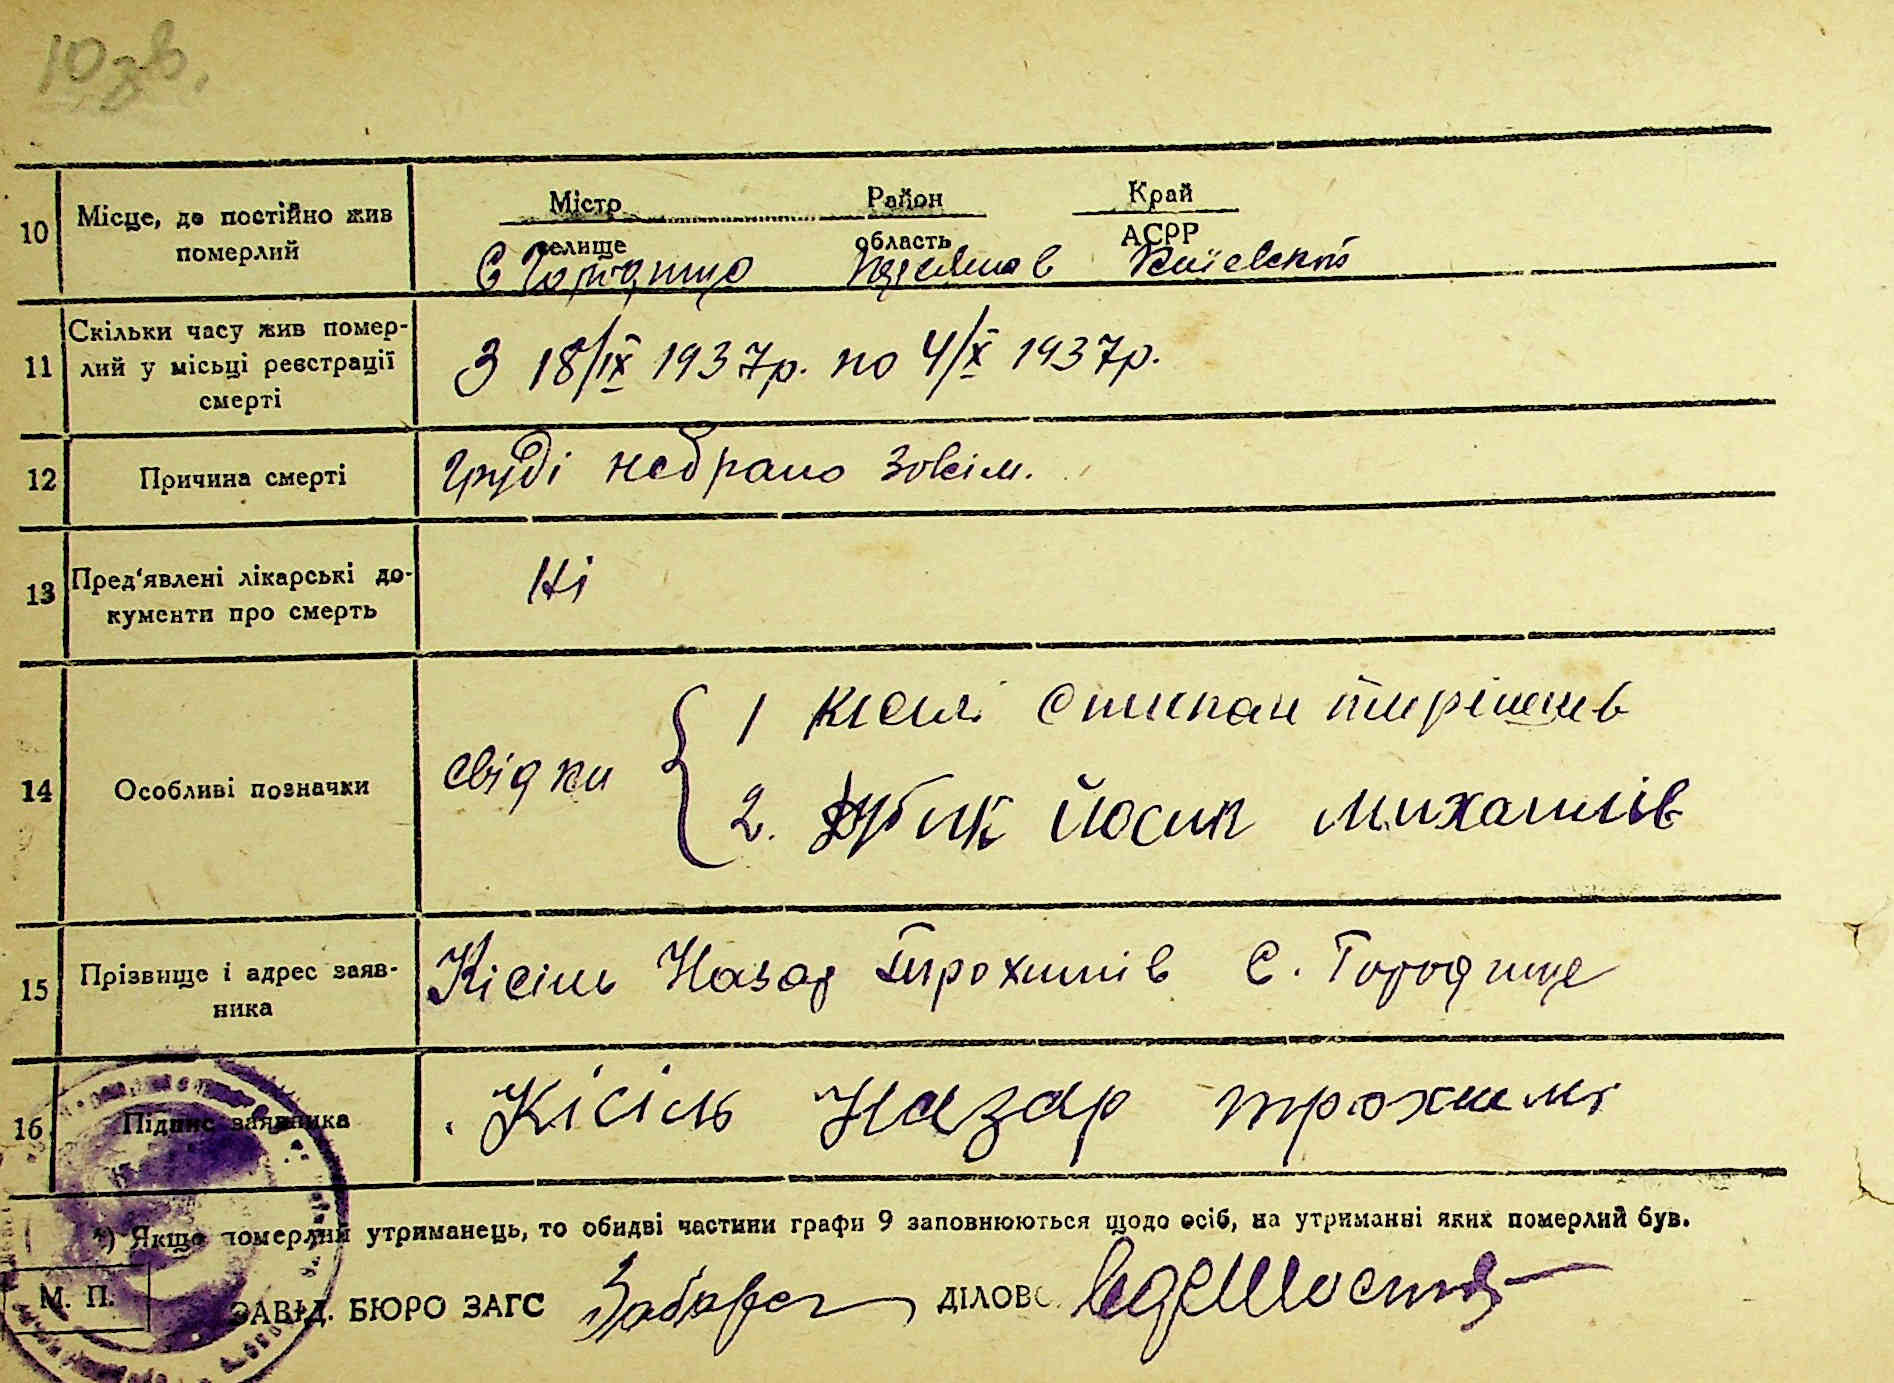 10 зв.
Місто Район Край
10 Місце, де постійно жив
померлий
селище область АСРР
С Городище Київської
11 Скільки часу жив помер-
лий у місьці реєстрації
смерті
З 18/IX 1937р. по 4/X 1937р.
12 Причина смерті
груді небрало зовсім.
13 Пред'явлені лікарські до-
кументи про смерть
Ні
14 Особливі позначки
свідки
1 Кісіль Степан
2. Дубик Йосип Михайлів
15 Прізвище і адрес заяв-
ника
Кісіль Назар Трохимів С. Городище
16 Підпис заявника
Кісіль Назар трохим
*) Якщо померлий утриманець, то обидві частини графи 9 заповнюються щодо осіб, на утриманні яких померлий був.
М. П.
ЗАВІД. БЮРО ЗАГС ДІЛОВ